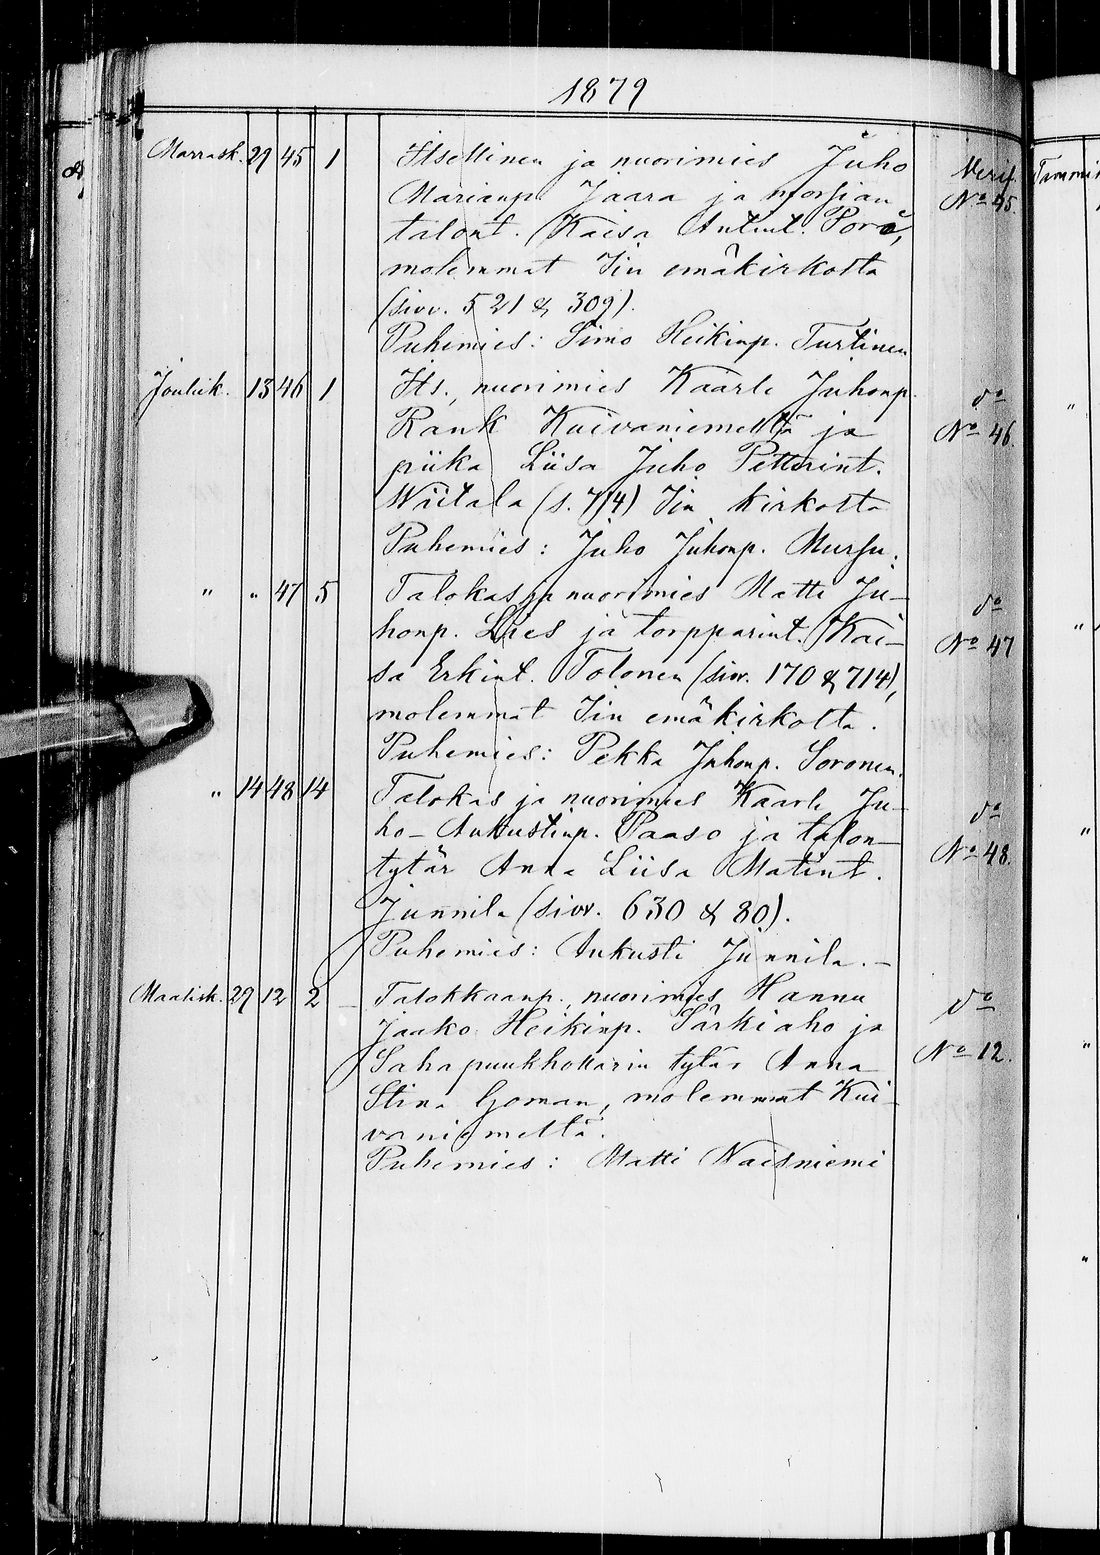 1879
Marrask. 29 45 1 Itsellinen ja nuorimies Juho Verif.
Marianp. Jaara ja morsian No 45.
talont. Kaisa Antint. Sorō,
molemmat Iin emäkirkosta
(sivv. 521 & 309).
Puhemies: Simo Heikinp. Turtinen
Jouluk. 13 46 1 Its., nuorimies Kaarle Juhonp. do
Rank Kuivaniemeltä ja No 46.
piika Liisa Juho Petterint.
Wiitala (s. 714) Iin kirkosta
Puhemies: Juho Juhonp. Mursu.
" " 47 5 Talokas ja nuorimies Matti Ju- do
honp. Lies ja torpparint. Kai- No 47
sa Erkint. Tolonen (sivv. 170 & 714),
molemmat Iin emäkirkosta.
Puhemies: Pekka Juhonp. Soronen.
" 14 48 14 Talokas ja nuorimies Kaarle Ju- do
ho-Aukustinp. Paaso ja talon- No 48.
tytär Anna Liisa Matint.
Junnila (sivv. 630 & 80).
Puhemies: Aukusti Junnila.-
Maalisk. 29 12 2 - Talokkaanp., nuorimies Hannu do
Jaako Heikinp. Särkiaho ja No 12.
Sahapuukhollarin tytär Anna
Stina Goman, molemmat Kui-
vaniemeltä.
Puhemies: Matti Waisniemi